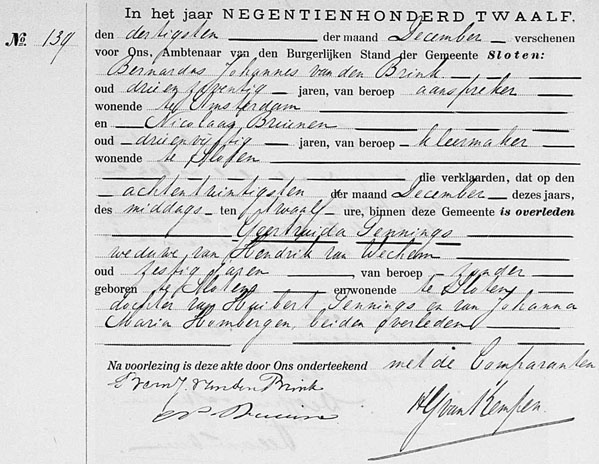 In het jaar NEGENTIENHONDERD TWAALF.
No. 139 den dertigsten der maand December verschenen
voor Ons, Ambtenaar van den Burgerlijken Stand der Gemeente Sloten:
Bernardus Johannes van den Brink
oud drieenzeventig jaren, van beroep aanspreker
wonende te Amsterdam
en Nicolaas Bruinen
oud drieenvijftig jaren, van beroep kleermaker
wonende te Sloten
die verklaarden, dat op den
achtentwintigsten der maand December dezes jaars,
des middags ten twaalf ure, binnen deze Gemeente is overleden
Geertruida Jennings
weduwe van Hendrik van Wechem
oud zestig jaren, van beroep zonder
geboren te Sloten en wonende te Sloten
dochter van Huibert Jennings en van Johanna
Maria Hombergen, beiden overleden
Na voorlezing is deze akte door Ons onderteekend met de Comparanten
J. van den Brink
van Kempen